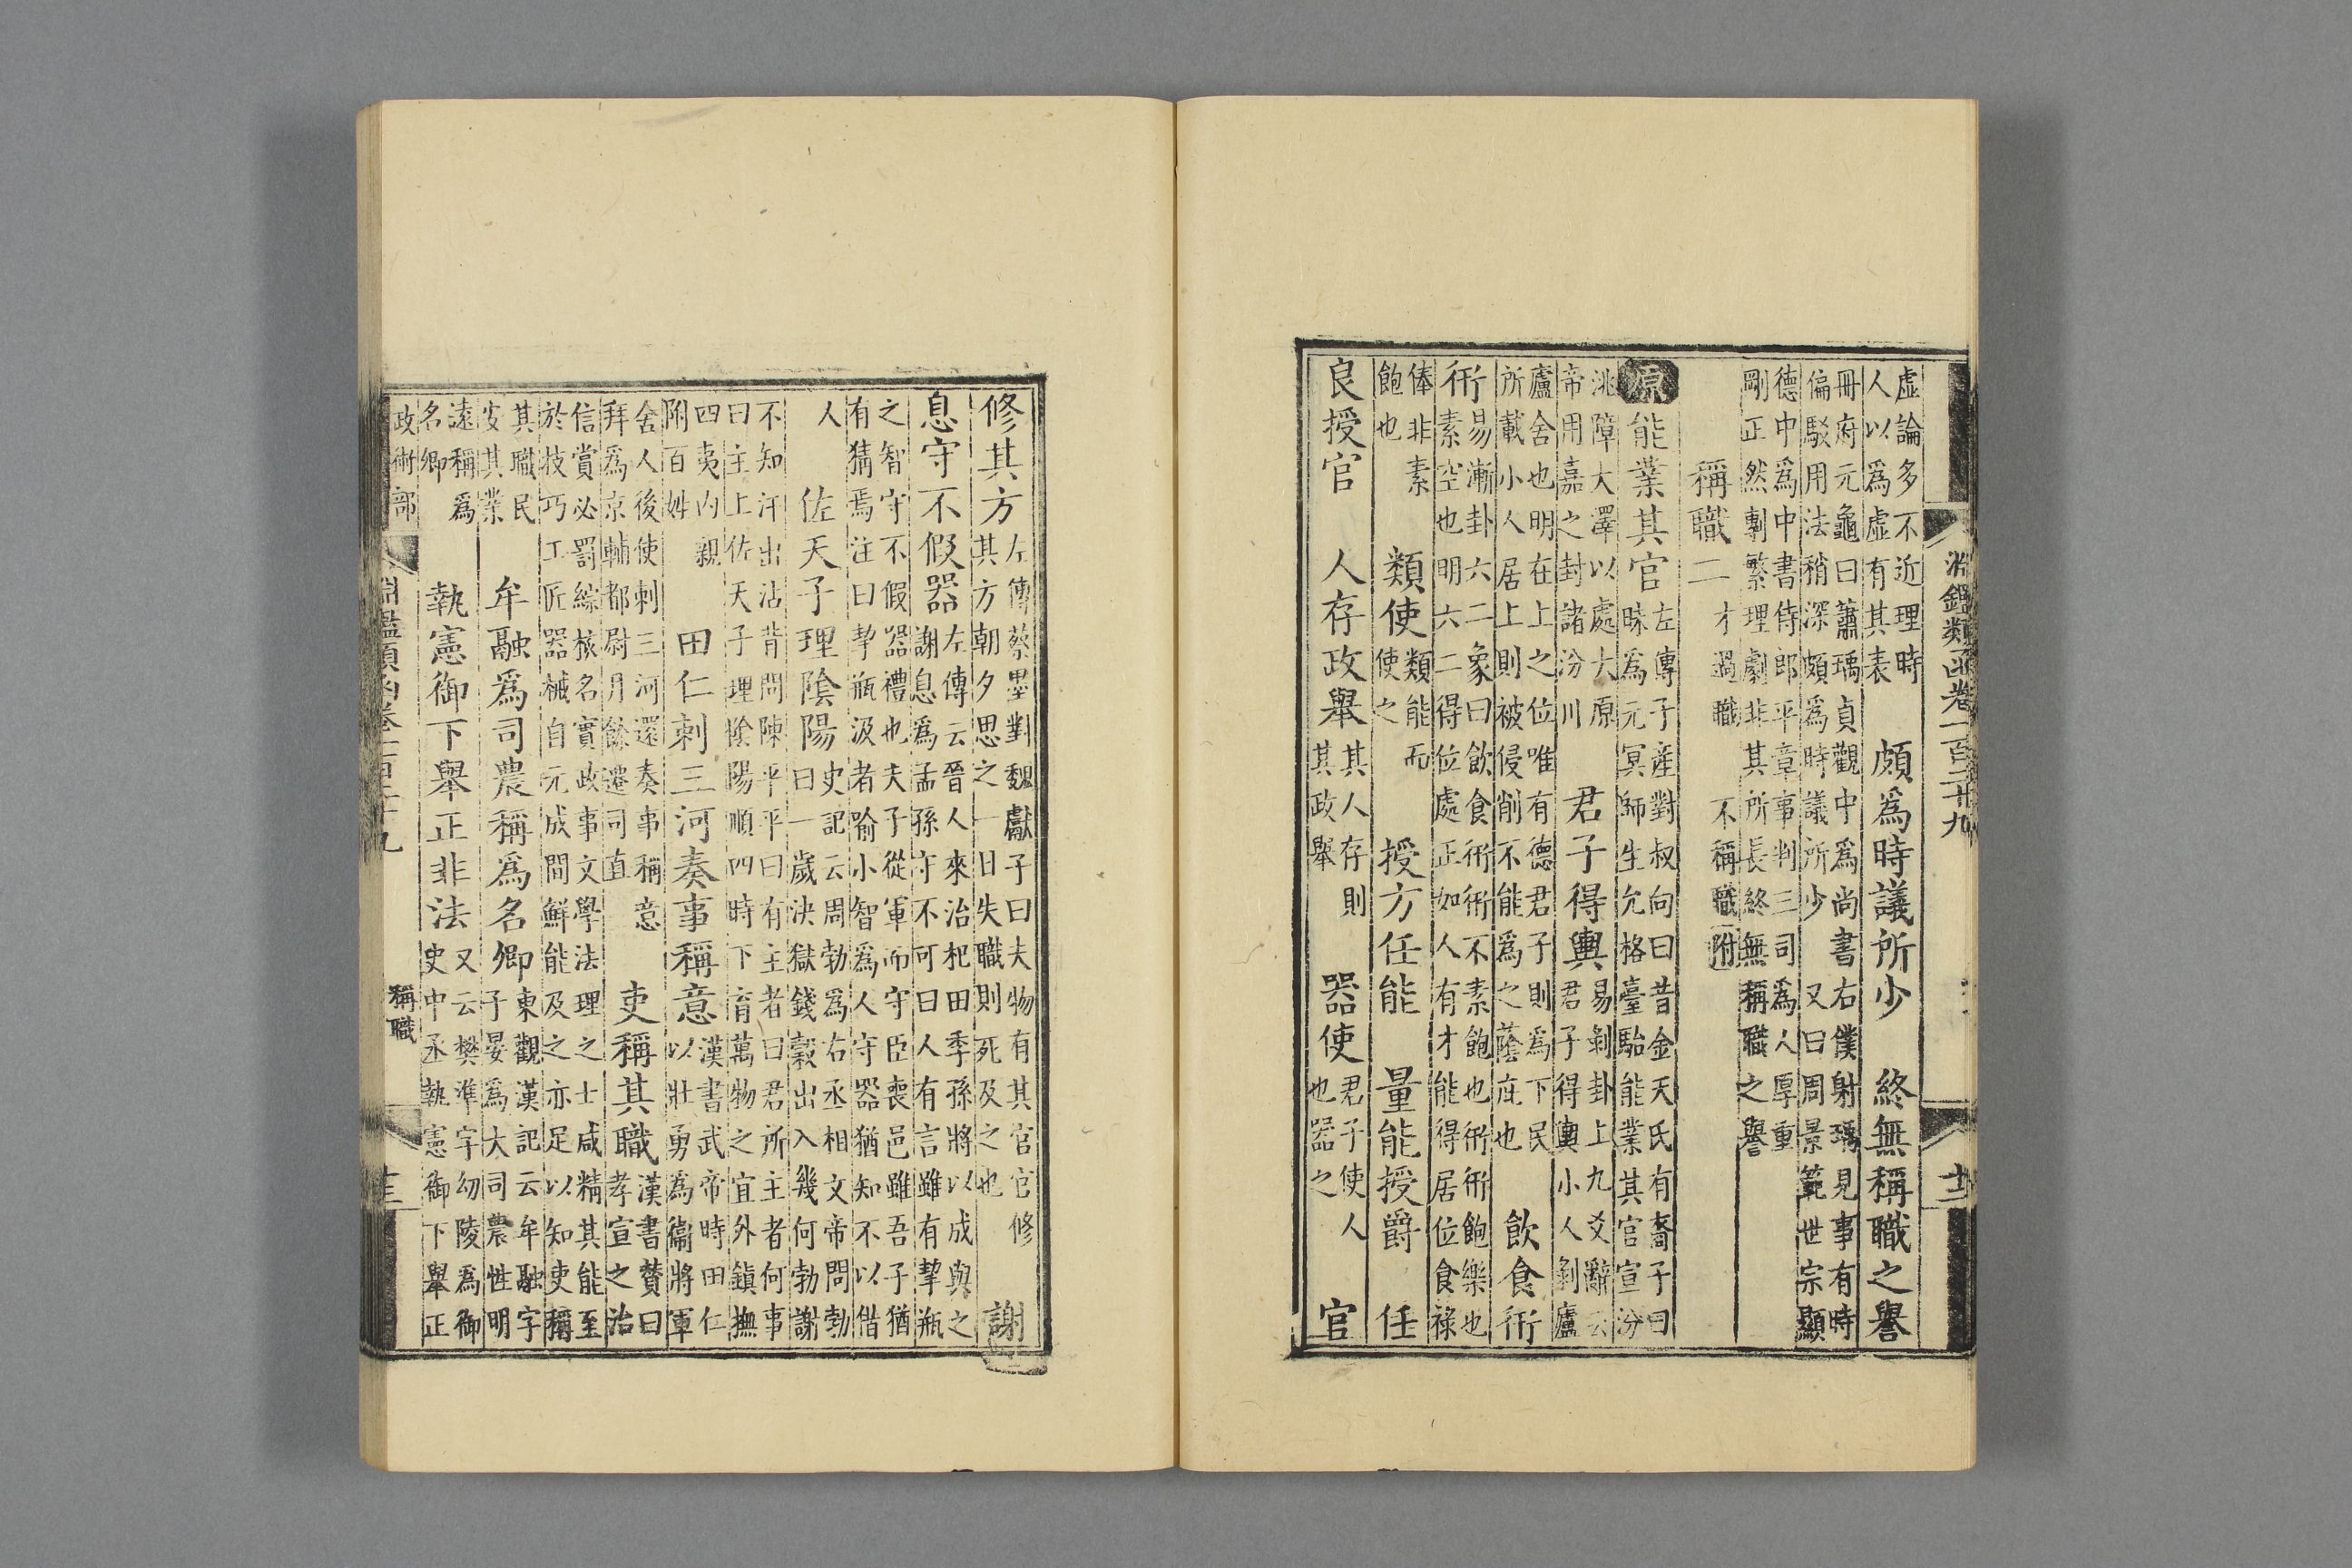 淵鑑類函卷一百二十九
虛論多不近理時
人以為虛有其表
頗為時議所少
終無稱職之譽
冊府元龜曰蕭瑀貞觀中為尚書右僕射瑀見事有時
偏駁用法稍深頗為時議所少
又曰周景範世宗顯
德中為中書侍郎平章事判三司為人厚重
剛正然剸繁理劇非其所長終無稱職之譽
稱職二
才過職
不稱職附
原
能業其官
左傳子產對叔向曰昔金天氏有裔子曰
昧為元冥師生允格臺駘能業其官宣汾
洮障大澤以處大原
帝用嘉之封諸汾川
君子得輿
易剝卦上九爻辭云
君子得輿小人剝廬
廬舍也明在上之位唯有德君子則為下民
所載小人居上則被侵削不能為之蔭庇也
飲食衎
衎
易漸卦六二象曰飲食衎衎不素飽也衎衎飽樂也
素空也明六二得位處正如人有才能得居位食祿
俸非素
飽也
類使
類能而
使之
授方任能
量能授爵
任
良授官
人存政舉
其人存則
其政舉
器使
君子使人
也器之
官
修其方
左傳蔡墨對魏獻子曰夫物有其官官修
其方朝夕思之一日失職則死及之也
謝
息守不假器
左傳云晉人來治杞田季孫將以成與之
謝息為孟孫守不可曰人有言雖有挈瓶
之智守不假器禮也夫子從軍而守臣喪邑雖吾子猶
有猜焉注曰挈瓶汲者喻小智為人守器猶知不以借
人
佐天子理陰陽
史記云周勃為右丞相文帝問勃
曰一歲決獄錢穀出入幾何勃謝
不知汗出沾背問陳平平曰有主者曰君所主者何事
曰主上佐天子理陰陽順四時下育萬物之宜外鎮撫
四夷內親
附百姓
田仁刺三河奏事稱意
漢書武帝時田仁
以壯勇為衞將軍
舍人後使刺三河還奏事稱意
拜為京輔都尉月餘遷司直
吏稱其職
漢書贊曰
孝宣之治
信賞必罰綜核名實政事文學法理之士咸精其能至
於技巧工匠器械自元成間鮮能及之亦足以知吏稱
其職民
安其業
牟融為司農稱為名卿
東觀漢記云牟融字
子晏為大司農性明
遠稱為
名卿
執憲御下舉正非法
又云樊準字幼陵為御
史中丞執憲御下舉正
政術部
淵鑑類函卷一百二十九
稱職